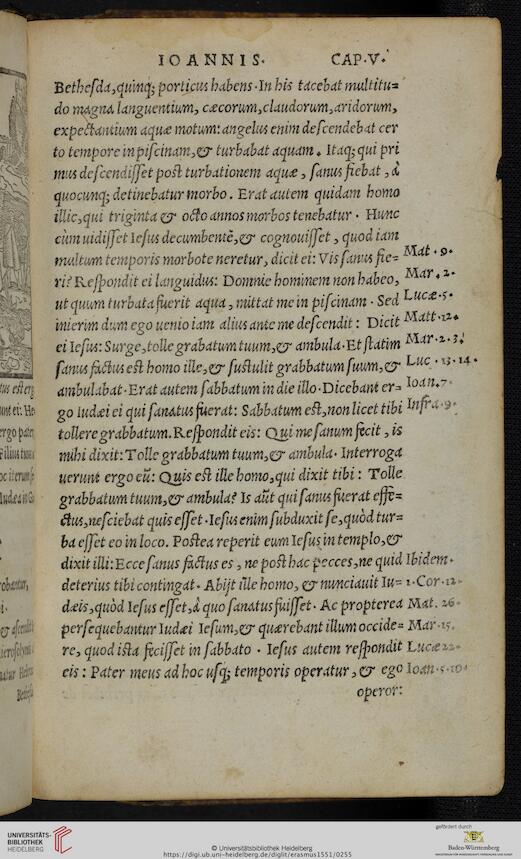 IOANNIS. CAP.V.
Bethesda, quinq; porticus habens. In his iacebat multitu=
do magna languentium, cæcorum, claudorum, aridorum,
expectantium aquæ motum: angelus enim descendebat cer
to tempore in piscinam, & turbabat aquam. Itaq; qui pri
mus descendisset post turbationem aquæ, sanus fiebat, à
quocunq; detinebatur morbo. Erat autem quidam homo
illic, qui triginta & octo annos morbos tenebatur. Hunc
cùm uidisset Iesus decumbentē, & cognouisset, quod iam
multum temporis morbo teneretur, dicit ei: Vis sanus fie=
Mat. 9.
ri? Respondit ei languidus: Domine hominem non habeo,
Mar. 2.
ut quum turbata fuerit aqua, mittat me in piscinam. Sed
Lucæ. 5.
interim dum ego uenio iam alius ante me descendit: Dicit
Matt. 12.
ei Iesus: Surge, tolle grabatum tuum, & ambula. Et statim
Mar. 2. 3.
sanus factus est homo ille, & sustulit grabbatum suum, &
Luc. 13. 14.
ambulabat. Erat autem sabbatum in die illo. Dicebant er=
Ioan. 7.
go Iudæi ei qui sanatus fuerat: Sabbatum est, non licet tibi
Infra. 9.
tollere grabbatum. Respondit eis: Qui me sanum fecit, is
mihi dixit: Tolle grabbatum tuum, & ambula. Interroga
uerunt ergo eū: Quis est ille homo, qui dixit tibi: Tolle
grabbatum tuum, & ambula? Is aūt qui sanus fuerat effe=
ctus, nesciebat quis esset. Iesus enim subduxit se, quòd tur=
ba esset eo in loco. Postea reperit eum Iesus in templo, &
dixit illi: Ecce sanus factus es, ne post hac pecces, ne quid
Ibidem.
deterius tibi contingat. Abijt ille homo, & nunciauit Iu=
1. Cor. 12.
dæis, quòd Iesus esset, à quo sanatus fuisset. Ac propterea
Mat. 26.
persequebantur Iudæi Iesum, & quærebant illum occide=
Mar. 15.
re, quod ista fecisset in sabbato. Iesus autem respondit
Lucæ 22.
eis: Pater meus ad hoc usq; temporis operatur, & ego
Ioan. 5. 10.
operor:
UNIVERSITÄTS-
BIBLIOTHEK
HEIDELBERG
© Universitätsbibliothek Heidelberg
https://digi.ub.uni-heidelberg.de/diglit/erasmus1551/0255
gefördert durch
Baden-Württemberg